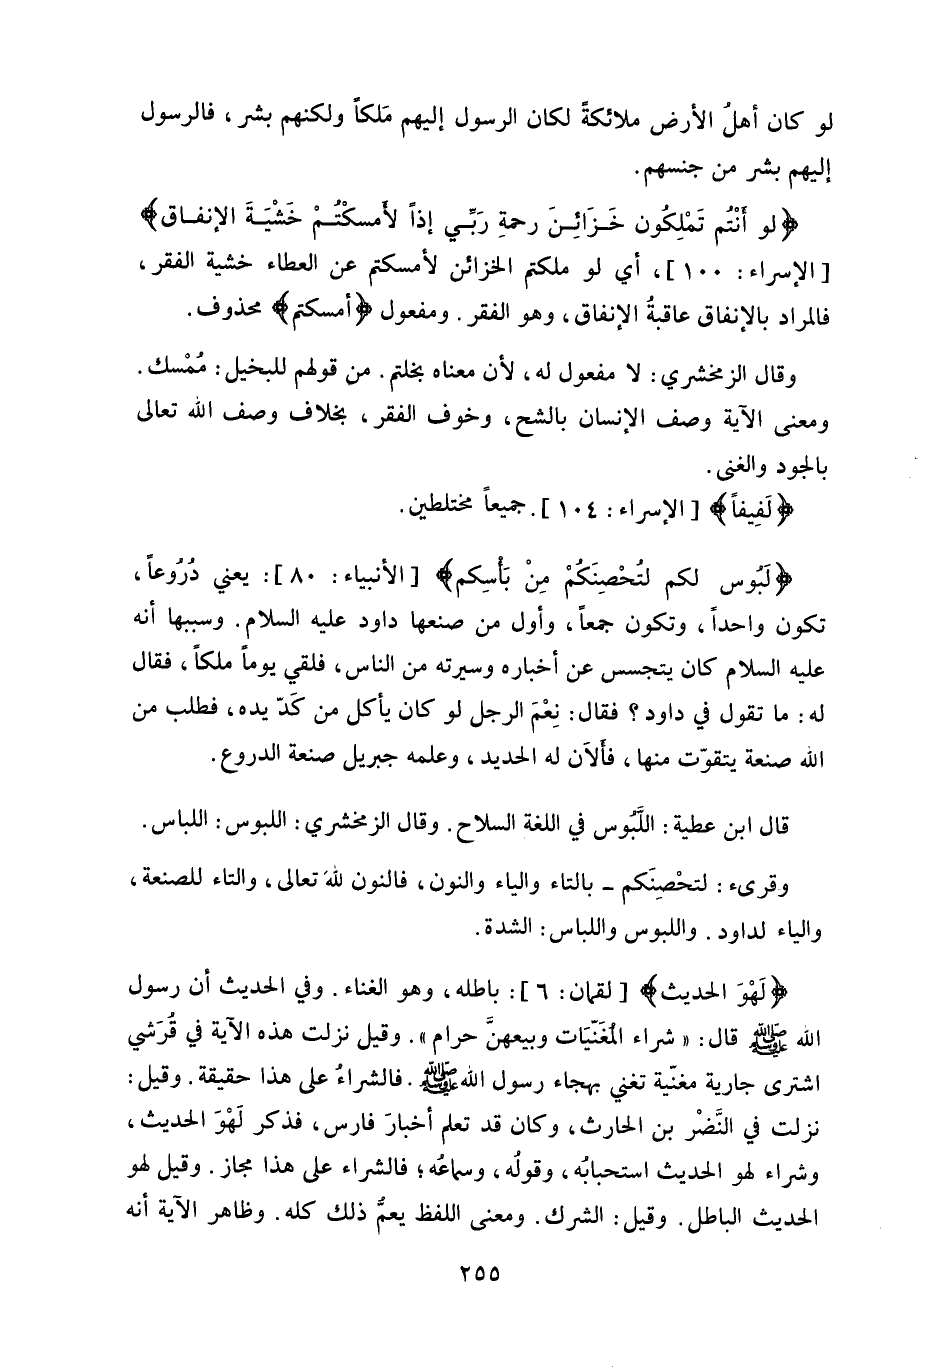 لو كان أهلُ الأرض ملائكةً لكان الرسول إليهم مَلكاً ولكنهم بشر ، فالرسول
إليهم بشر من جنسهم.
﴿لو أَنْتُم تَمْلِكُون خَـزَائِـنَ رحمةِ رَبِّـي إذاً لأَمسكْتُـمْ خَشْيَـةَ الإنفـاق﴾
[الإسراء: ١٠٠]، أي لو ملكتم الخزائن لأمسكتم عن العطاء خشية الفقر ،
فالمراد بالإنفاق عاقبةُ الإنفاق، وهو الفقر. ومفعول ﴿أمسكتم﴾ محذوف.
وقال الزمخشري: لا مفعول له، لأن معناه بخلتم. من قولهم للبخيل: مُمْسك.
ومعنى الآية وصف الإنسان بالشح، وخوف الفقر ، بخلاف وصف الله تعالى
بالجود والغنى.
﴿لَفِيفاً﴾ [الإسراء: ١٠٤]. جميعاً مختلطين.
﴿لَبُوس لكم لتُحْصِنَكُمْ مِنْ بَأْسِكم﴾ [الأنبياء: ٨٠]: يعني دُرُوعاً،
تكون واحداً، وتكون جمعاً، وأول من صنعها داود عليه السلام. وسببها أنه
عليه السلام كان يتجسس عن أخباره وسيرته من الناس، فلقي يوماً ملكاً، فقال
له: ما تقول في داود؟ فقال: نِعْمَ الرجل لو كان يأكل من كَدّ يده، فطلب من
الله صنعة يتقوّت منها، فأَلاَن له الحديد، وعلمه جبريل صنعة الدروع.
قال ابن عطية: اللَّبُوس في اللغة السلاح. وقال الزمخشري: اللبوس: اللباس.
وقرىء: لتحْصِنَكم - بالتاء والياء والنون، فالنون للهَ تعالى، والتاء للصنعة،
والياء لداود. واللبوس واللباس: الشدة.
﴿لَهْوَ الحديث﴾ [لقمان: ٦]: باطله، وهو الغناء. وفي الحديث أن رسول
الله ﷺ قال: «شراء المُغَنّيَات وبيعهنَّ حرام». وقيل نزلت هذه الآية في قُرَشي
اشترى جارية مغنّية تغني بهجاء رسول الله ﷺ. فالشراءُ على هذا حقيقة. وقيل:
نزلت في النَّضْر بن الحارث، وكان قد تعلم أخبارَ فارس، فذكر لَهْوَ الحديث،
وشراء لهو الحديث استحبابُه، وقولُه، وسماعُه؛ فالشراء على هذا مجاز. وقيل لهو
الحديث الباطل. وقيل: الشرك. ومعنى اللفظ يعمُّ ذلك كله. وظاهر الآية أنه
٢٥٥